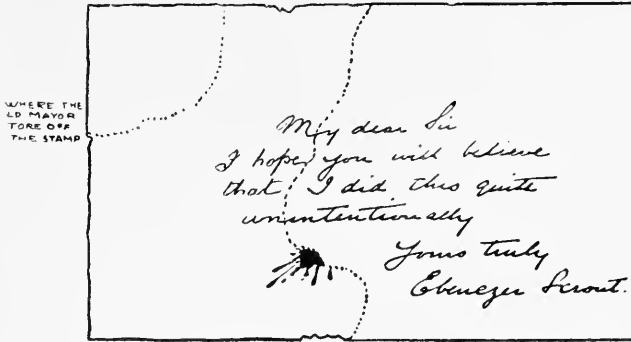 WHERE THE
LD MAYOR
TORE OFF
THE STAMP
My dear Sir
I hope you will believe
that I did this quite
unintentionally
Yours truly
Ebenezer Scrout.